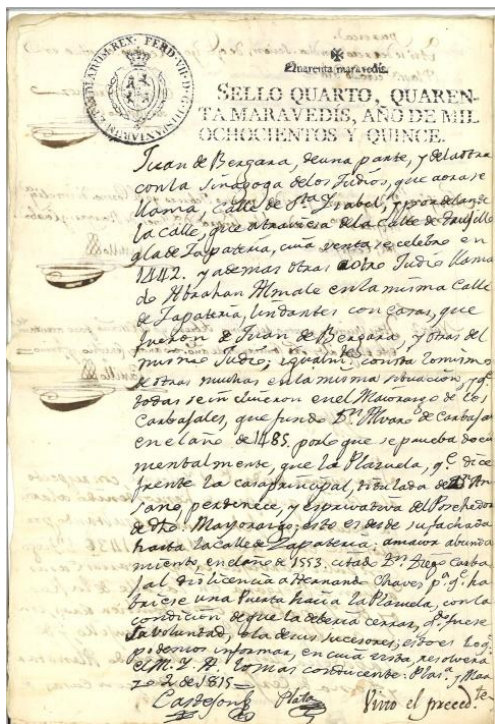 FERD. VII. D. G. HISPANIAR. ET INDIARUM REX
Quarenta maravedis.
SELLO QUARTO, QUAREN-
TA MARAVEDIS, AÑO DE MIL
OCHOCIENTOS Y QUINCE.
Juan de Bergara, de una parte, y de la otra
con la Sinagoga de los Judios, que aora se
llama, calle de Sta Ysabel, y por delante
la calle, que atraviesa de la calle de Trujillo
a la de Zapateria, cuia venta se celebro en
1442. y ademas otras a otro Judio llama
do Abrahan Almale en la misma Calle
de Zapateria, lindantes con casas, que
fueron de Juan de Bergara, y otras del
mismo Judio; igualmte consta lo mismo
de otras muchas en la misma situacion, y qe
todas se incluieron en el Maiorazgo de los
Carbajales, que fundo Dn Alvaro de Carbajal
en el año de 1485. por lo que se prueba docu
mentalmente, que la Plazuela, qe dice
frente la casa principal, titulada de
sano, pertenece, y es privativa del Posehedor
de dho. Mayorazgo; esto es desde su fachada
hasta la calle de Zapateria: a maior abunda
miento, en el año de 1553. citado Dn Diego Carba
jal dio licencia a Hernando Chaves pa qe ha
briese una Puerta hacia la Plazuela, con la
condicion de que la deberia cerrar, qdo fuese
su voluntad, o la de sus sucesores; esto es lo qe
podemos informar, en cuia vista, resolvera
el M. Y. A. lo mas conducente. Plasa y Mar
zo 2 de 1815
Plata Vino el preced.te